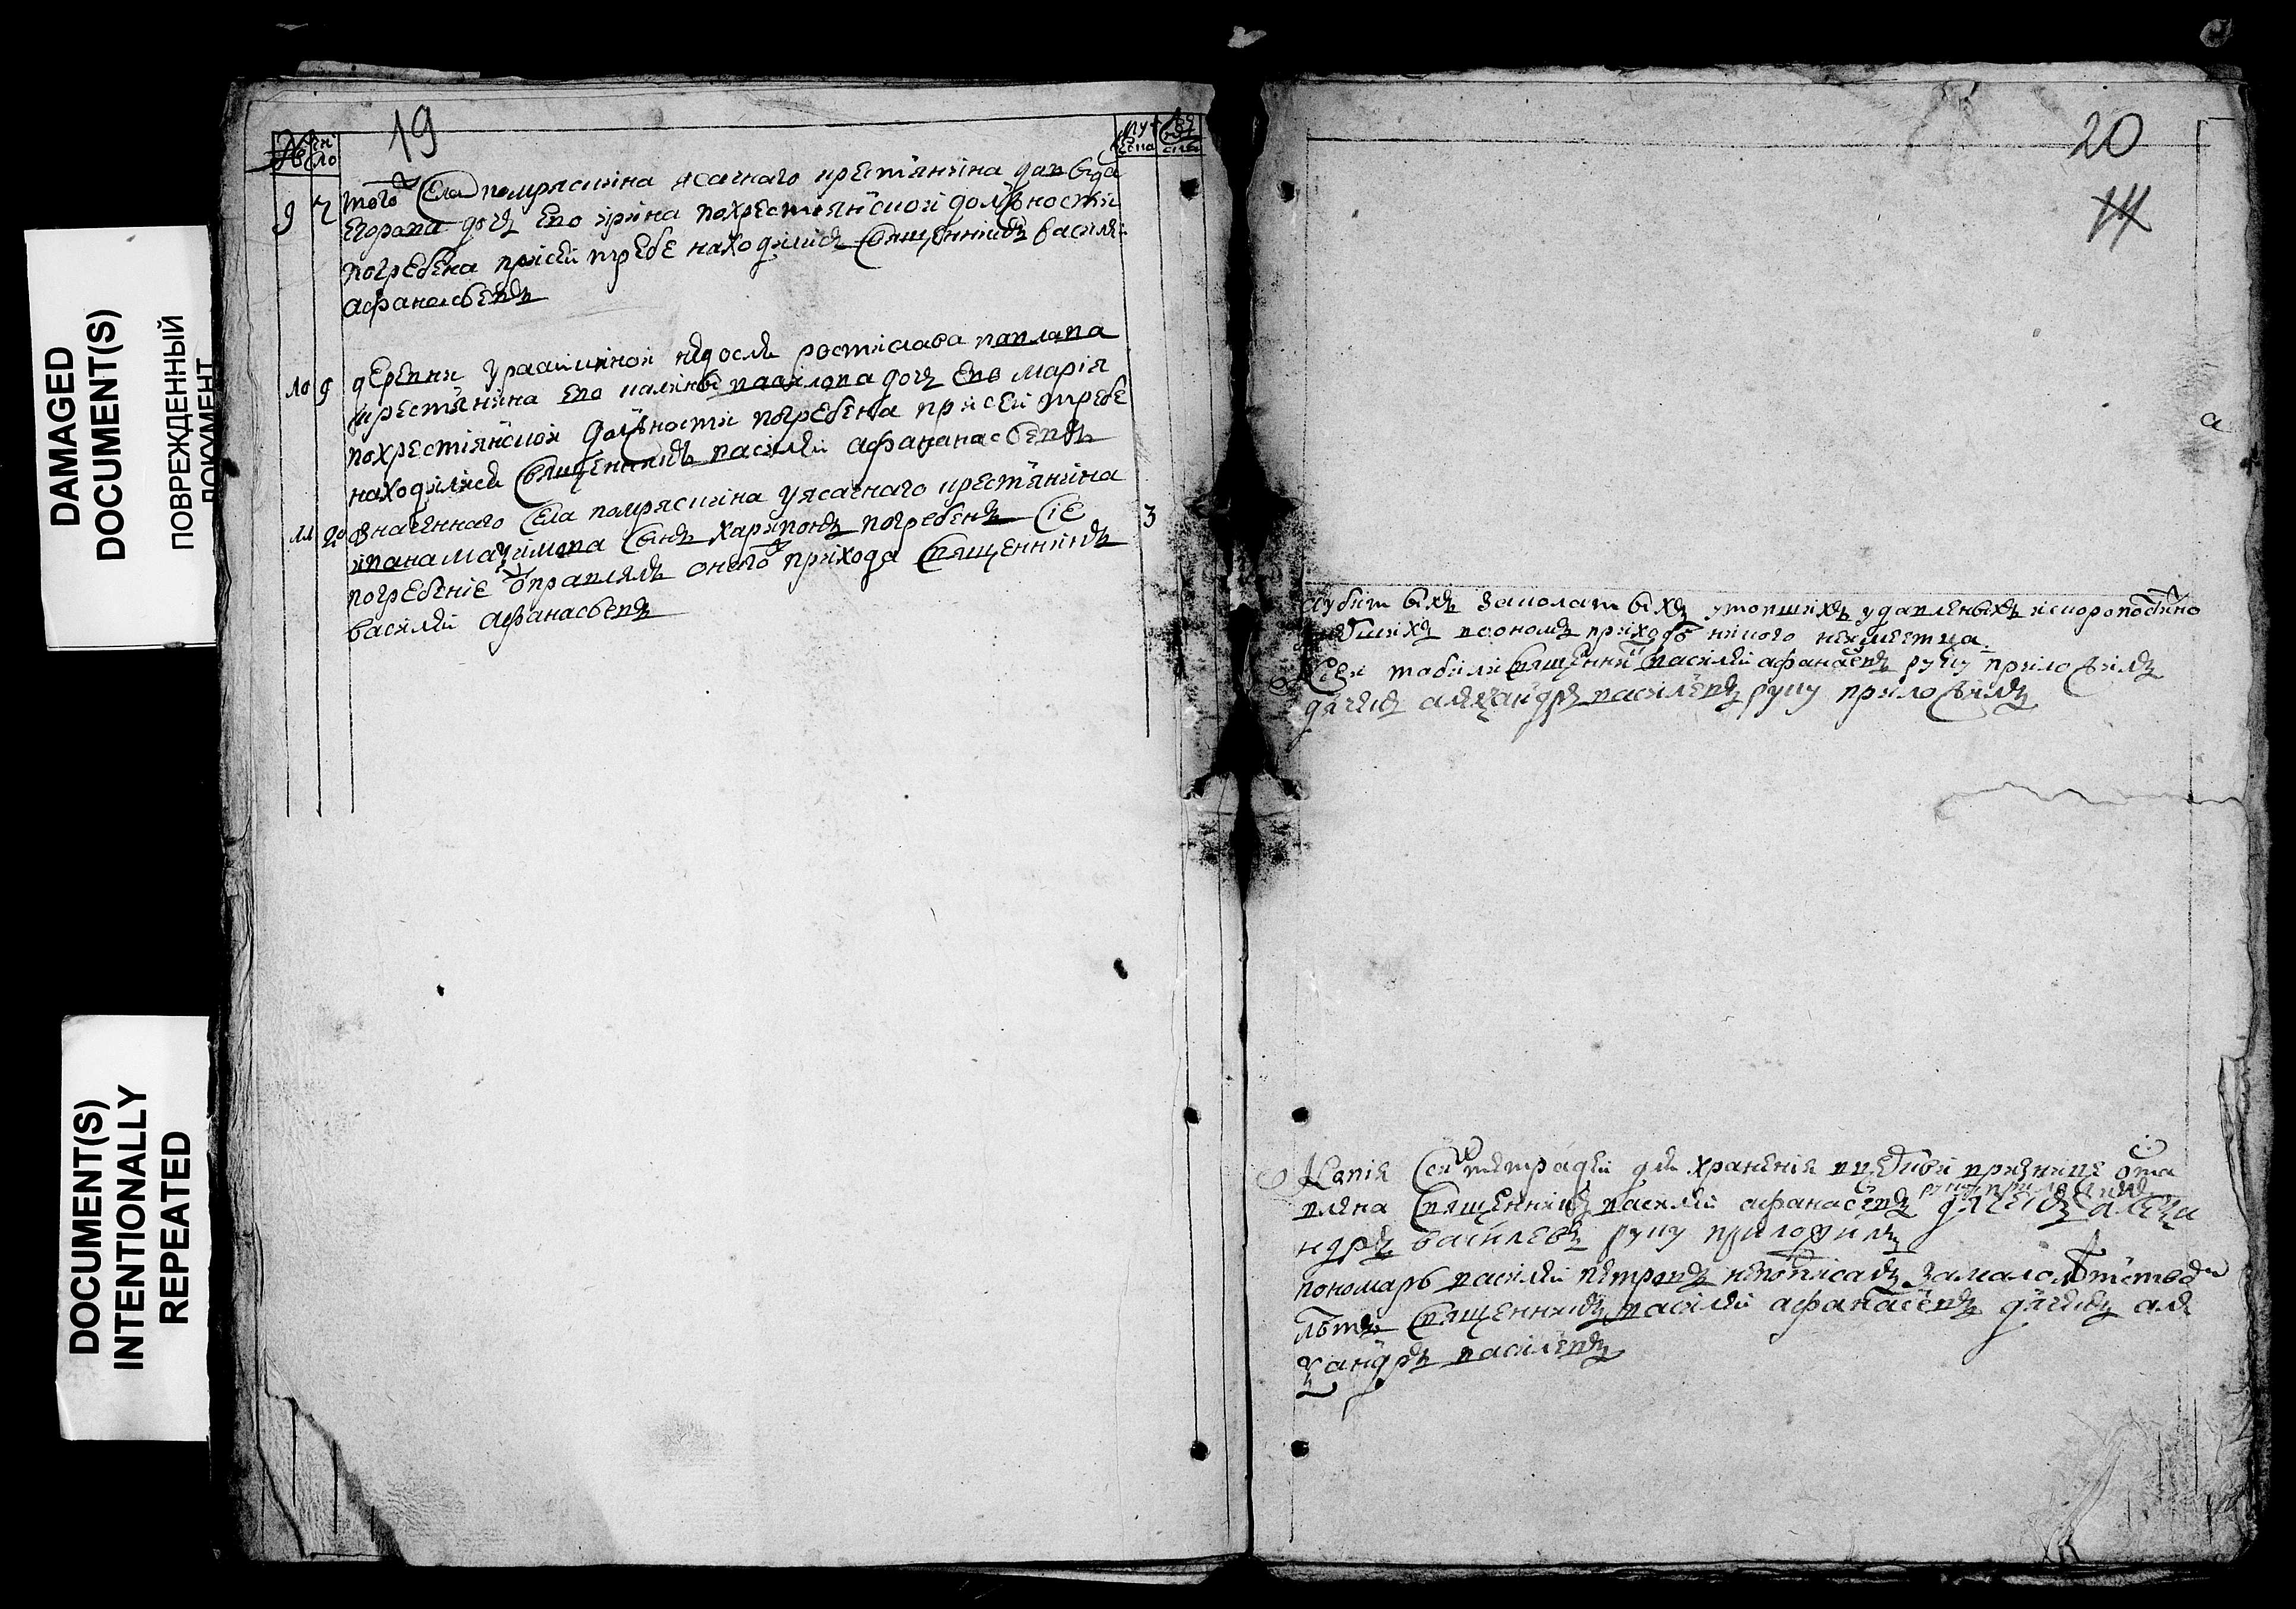 DAMAGED
DOCUMENT(S)
ПОВРЕЖДЕННЫЙ
ДОКУМЕНТ
DOCUMENT(S)
INTENTIONALLY
REPEATED
19
№ чи
сло
9 7 того села помряскина ясачнаго крестьянина давыда
егорова дочь ево ирина похрестиянской должности
погребена присеи требе находился священникъ васили
афанасьевъ
10 9 деревни ураиминой рѣдосли ростислава павлова
крестьянина ево павлова дочь ево мария
похрестиянской должности погребена присеи требе
находился священникъ василеи афананасьевъ
11 20 значенного села помряскина уясачнаго крестьянина 3
ивана маѯимова сынъ харитонъ погребенъ сие
погребение отправлялъ оного прихода священникъ
василеи афанасьевъ
20
14
а
убитыхъ заколатыхъ утопшихъ удавленыхъ искоропостижно
поономъ приходѣ никого неимеетца
табели священникъ василеи афанасевъ руку приложилъ
дячекъ алеѯандръ василевъ руку приложилъ
Копия сихъ тетрадеи для хранения вцеркви вризнице оста
влена священникъ василеи афанасевъ руку приложилъ дячекъ алеѯа
ндръ василевъ руку приложилъ
пономарь василеи петровъ неподписалъ замалолетством
летъ священникъ василеи афанасевъ дячекъ але
ѯандръ василевъ